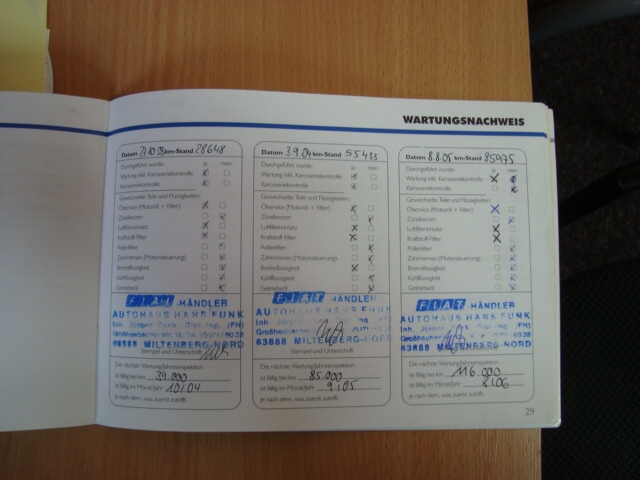 WARTUNGSNACHWEIS
Datum km-Stand 28648
Durchgeführt wurde: ja nein
Wartung inkl. Karosseriekontrolle
Karosseriekontrolle
Gewechselte Teile und Flüssigkeiten:
Ölservice (Motoröl + Filter)
Zündkerzen
Luftfiltereinsatz
Kraftstoff-Filter
Pollenfilter
Zahnriemen (Motorsteuerung)
Bremsflüssigkeit
Kühlflüssigkeit
Getriebeöl
FIAT-HÄNDLER
AUTOHAUS HANS FUNK
Inh. Jürgen Funk (FH)
63888 MILTENBERG-NORD
Stempel und Unterschrift
Die nächste Wartung/Jahresinspektion
ist fällig bei km 39.000
ist fällig im Monat/Jahr 10/04
je nach dem, was zuerst zutrifft.
Datum 3.9.04 km-Stand 55433
Durchgeführt wurde: ja nein
Wartung inkl. Karosseriekontrolle
Karosseriekontrolle
Gewechselte Teile und Flüssigkeiten:
Ölservice (Motoröl + Filter)
Zündkerzen
Luftfiltereinsatz
Kraftstoff-Filter
Pollenfilter
Zahnriemen (Motorsteuerung)
Bremsflüssigkeit
Kühlflüssigkeit
Getriebeöl
FIAT HÄNDLER
AUTOHAUS HANS FUNK
Inh. Jürgen
63888 MILTENBERG-NORD
Stempel und Unterschrift
Die nächste Wartung/Jahresinspektion
ist fällig bei km 85.000
ist fällig im Monat/Jahr 9/05
je nach dem, was zuerst zutrifft.
Datum 8.8.05 km-Stand 85975
Durchgeführt wurde: ja nein
Wartung inkl. Karosseriekontrolle
Karosseriekontrolle
Gewechselte Teile und Flüssigkeiten:
Ölservice (Motoröl + Filter)
Zündkerzen
Luftfiltereinsatz
Kraftstoff-Filter
Pollenfilter
Zahnriemen (Motorsteuerung)
Bremsflüssigkeit
Kühlflüssigkeit
Getriebeöl
FIAT-HÄNDLER
AUTOHAUS HANS FUNK
63888 MILTENBERG-NORD
Die nächste Wartung/Jahresinspektion
ist fällig bei km 116.000
ist fällig im Monat/Jahr 8.06
je nach dem, was zuerst zutrifft.
29